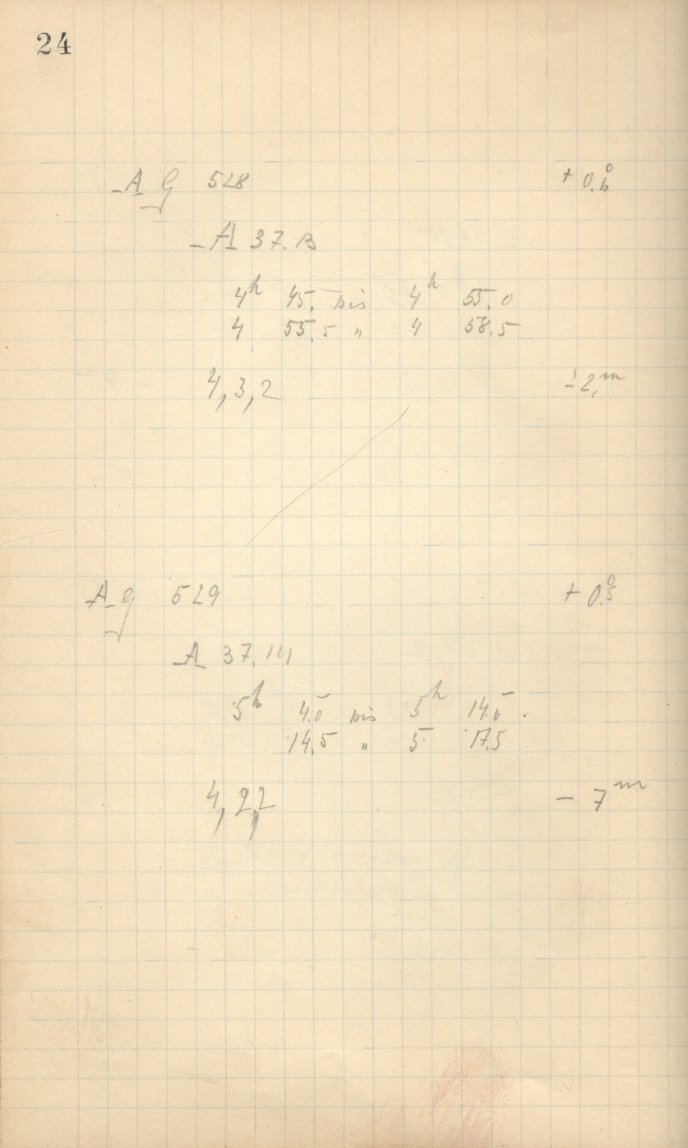 24
A G 528 + 0.°6
A 37.13
4h 45. bis 4h 55.0
4 55.5 " 4 58.5
4,3,2 -2m
A G 529 + 0.°5
A 37.14
5h 4.0 bis 5h 14.0
14.5 " 5 17.5
4,2,2 - 7m